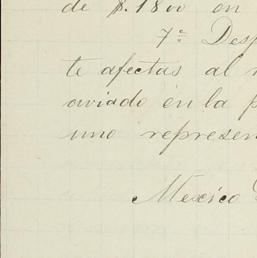 de $.1800 en
7ª Desp
te afectas al
aviado en la p
uno represen
Mexico